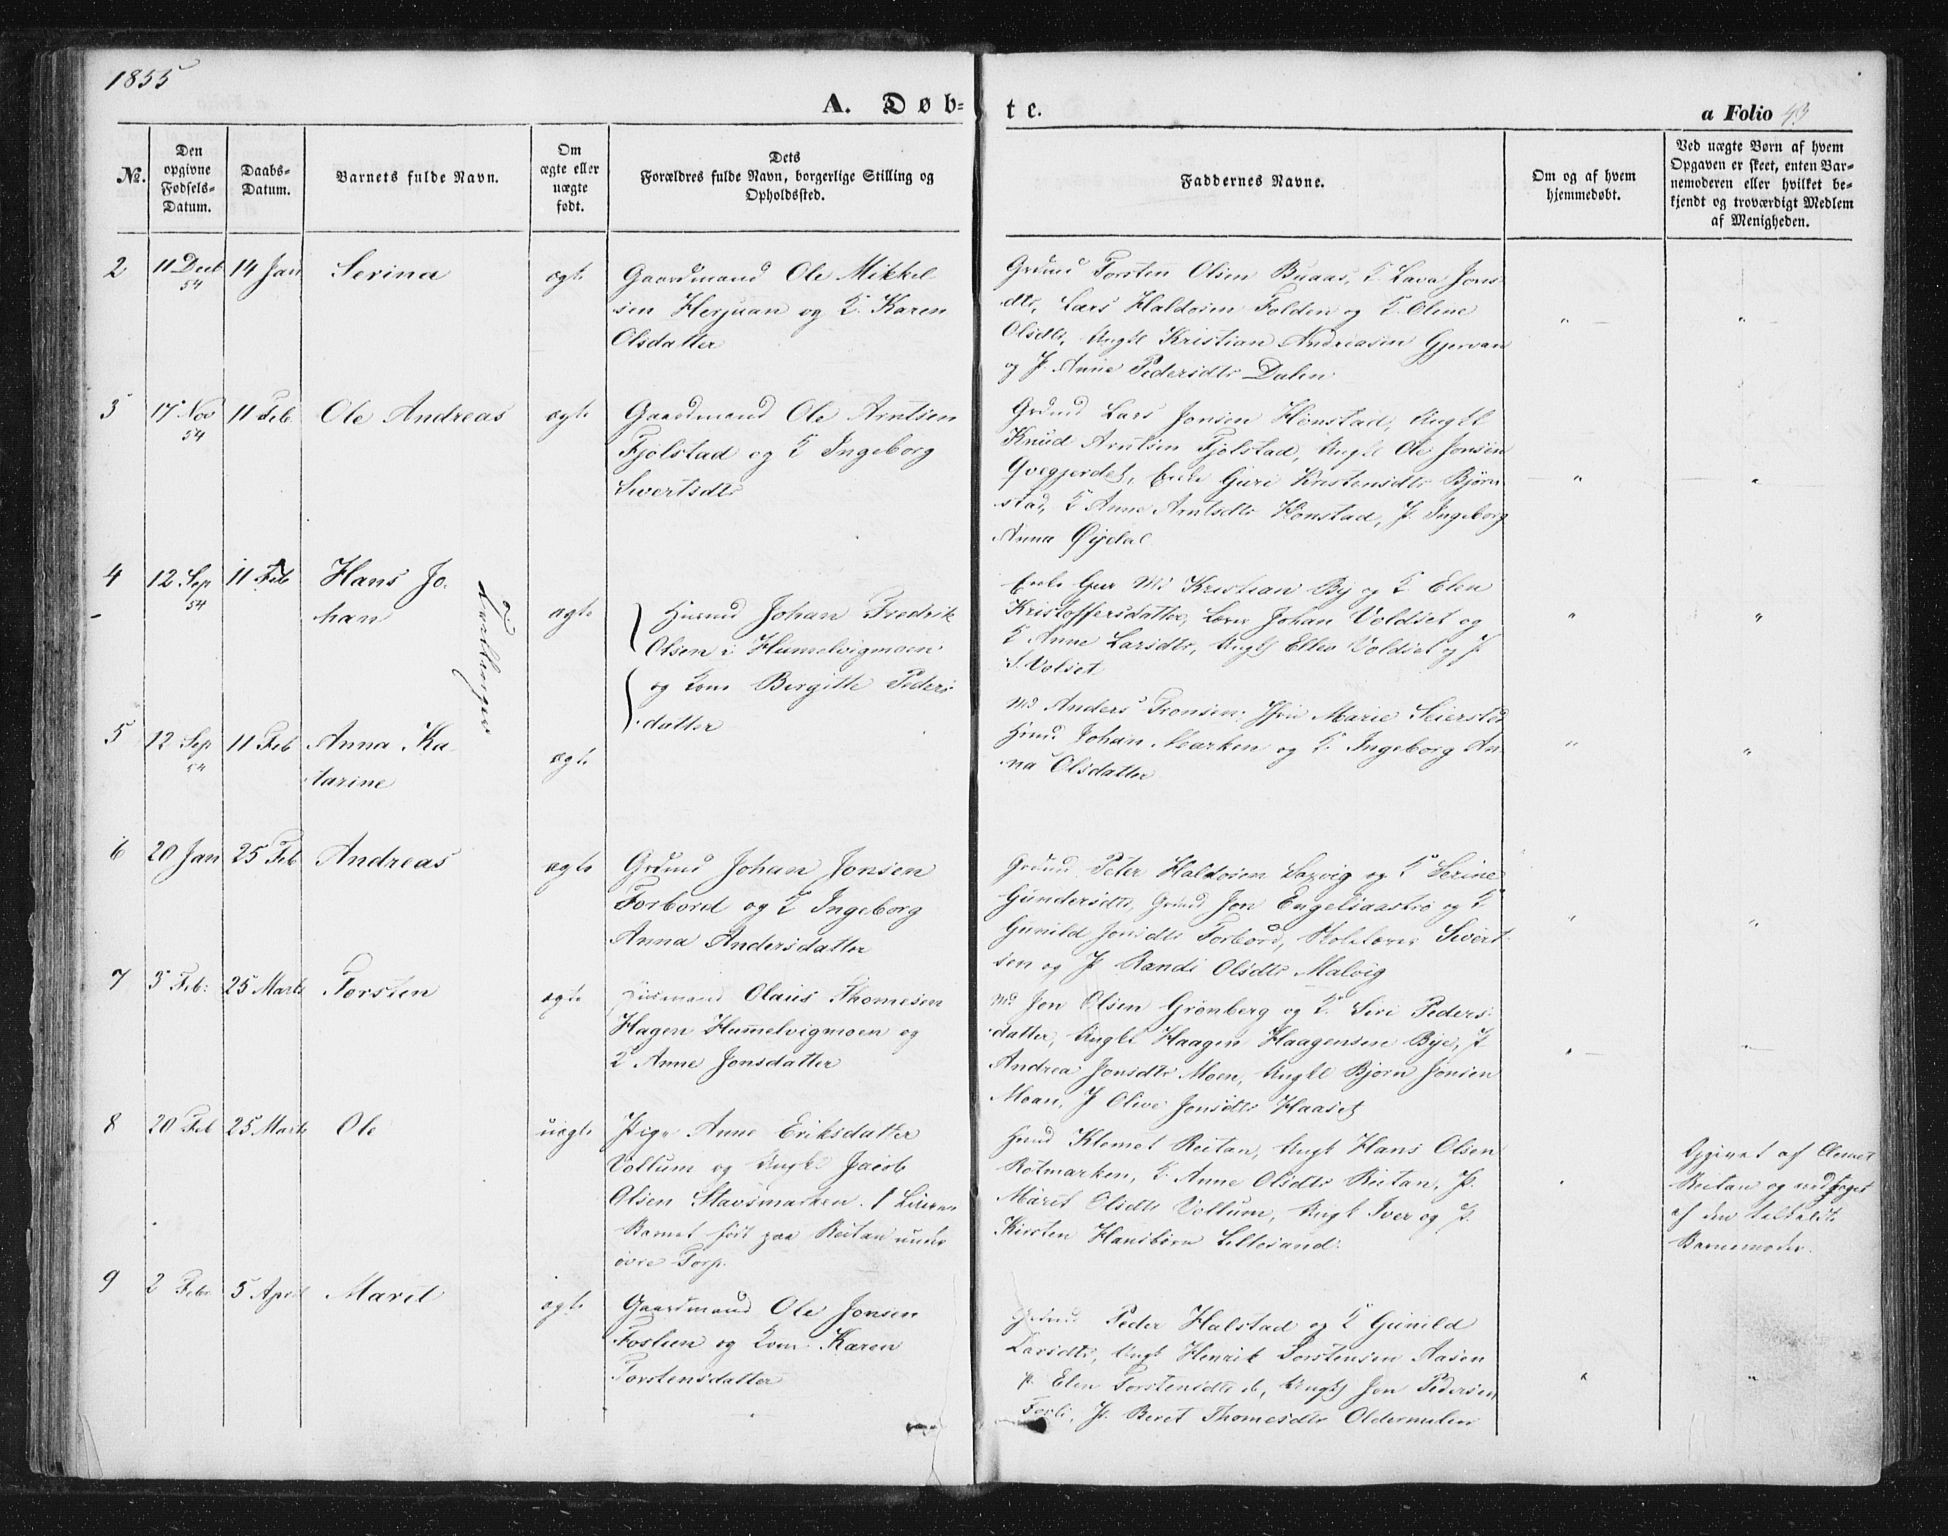 1855
A. Døb-
te.
a Folio 43
No.
Den opgivne Fødsels-Datum.
Daabs-Datum.
Barnets fulde Navn.
Om ægte eller uægte født.
Dets Forældres fulde Navn, borgerlige Stilling og Opholdssted.
Faddernes Navne.
Om og af hvem hjemmedøbt.
Ved uægte Børn af hvem Opgaven er skeet, enten Barnemoderen eller hvilket bekjendt og troværdigt Medlem af Menigheden.
2
11 Decb 54
14 Jan
Serina
ægte
Gaardmand Ole Mikkel
sen Herjuan og K. Karen
Olsdatter
Grdmd Torsten Olsen Buaas, K. Lava Jons
dtr, Lars Haldosen Folden og K. Oline
Olsdtr, Ungkl Kristian Andreasen Gjervan
og P. Anne Pedersdtr Dalen
3
17 Nov 54
11 Feb
Ole Andreas
ægte
Gaardmand Ole Arntsen
Fjolstad og K Ingeborg
Sivertsdtr
Grdmd Lars Jonsen Honstad, Ungkl
Knud Arntsen Fjolstad, Ungkl Ole Jonsen
Qvegjerdet, Enke Guri Kristensdtr Bjørn
stad, K Anne Arntsdtr Honstad, P. Ingeborg
Anna Øydal
4
12 Sep 54
11 Feb
Hans Jo-
han
Tvillinger
ægte
Husmd Johan Fredrik
Olsen i Hummelvigmoen
og Kone Bergitte Peders
datter
Kristian By og K Elen
Kristoffersdatter, Johan Voldset og
K Anne Larsdtr, Ungkl Voldset og P
Volset
5
12 Sep 54
11 Feb
Anna Ka-
tarine
ægte
Md Anders Tronsen, Marie Seierstad
Husmd Johan Marken og K. Ingeborg An-
na Olsdatter
6
20 Jan
25 Feb
Andreas
ægte
Grdmd Johan Jonsen
Forbord og K Ingeborg
Anna Andersdatter
Grdmd Peter Haldosen Saxvig og K Serine
Gundersdtr, Grdmd Jon Engelsaastrø og K
Gunild Jonsdtr Forbord, Skolelærer Sivert
sen og P. Randi Olsdtr Malvig
7
3 Feb:
25 Marts
Torsten
ægte
Husmand Olaus Thomesen
Hagen Hummelvigmoen og
K Anne Jonsdatter
Md Jon Olsen Grønberg og K. Siri Peders
datter, Ungkl Haagen Haagensen Bye, P
Andrea Jonsdtr Moen, Ungkl Bjørn Jonsen
Moan, P Olive Jonsdtr Haaset
8
20 Feb
25 Marts
Ole
uægte
Pige Anne Eriksdatter
Vollum og Ungkl Jacob
Olsen Stavsmarken.
Barnet født paa Reitan under
øvre Torp.
Husmd Klemet Reitan, Ungk Hans Olsen
Rotmarken, K. Anne Olsdtr Reitan, P.
Maret Olsdtr Vollum, Ungk Iver og P.
Kirsten Hansbørn Lillesand.
Opgivet af Clemet
Reitan og vedtaget
af den
Barnemoder.
9
2 Feb
5 April
Marit
ægte
Gaardmand Ole Jonsen
Foslien og Kone Karen
Torstensdatter
Grdmd Peder Halstad og K Gunild
Larsdtr, Ungk Henrik Torstensen Aasen
P. Elen Torstensdtr, Ungkl Jon Pedersen
P. Beret Thomesdtr